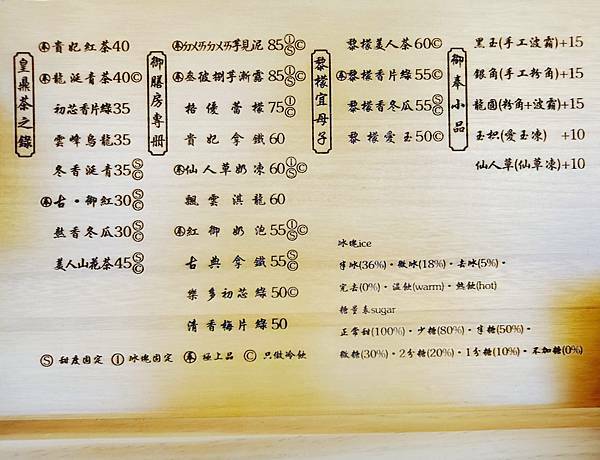 皇鼎茶之錄
貴妃紅茶40
龍涎青茶40Ⓒ
初芯香片綠35
雲峰烏龍35
冬香涎青35ⓈⒸ
古•御紅30ⓈⒸ
熬香冬瓜30ⓈⒸ
美人山花茶45ⓈⒸ
御膳房專冊
ㄉㄨㄞㄉㄨㄞ芋見泥85ⒾⓈⒸ
叁彼捌芋漸露85ⒾⓈⒸ
格優蕾檬75ⒾⒸ
貴妃拿鐵60
仙人草奶凍60ⒾⒸ
飄雲滇龍60
紅御奶泡55ⒾⓈⒸ
古典拿鐵55ⓈⒸ
樂多初芯綠50Ⓒ
清香梅片綠50
黎檬宜母子
黎檬美人茶60Ⓒ
黎檬香片綠55Ⓒ
黎檬香冬瓜55ⓈⒸ
黎檬愛玉50Ⓒ
御奉小品
黑玉(手工波霸)+15
銀角(手工粉角)+15
龍圓(粉角+波霸)+15
玉枳(愛玉凍) +10
仙人草(仙草凍)+10
冰塊ice
半冰(36%)•微冰(18%)•去冰(5%)•
完去(0%)•溫飲(warm)•熱飲(hot)
糖量表sugar
正常甜(100%)•少糖(80%)•半糖(50%)•
微糖(30%)•2分糖(20%)•1分糖(10%)•不加糖(0%)
Ⓢ 甜度固定 Ⓘ 冰塊固定 極上品 Ⓒ 只做冷飲